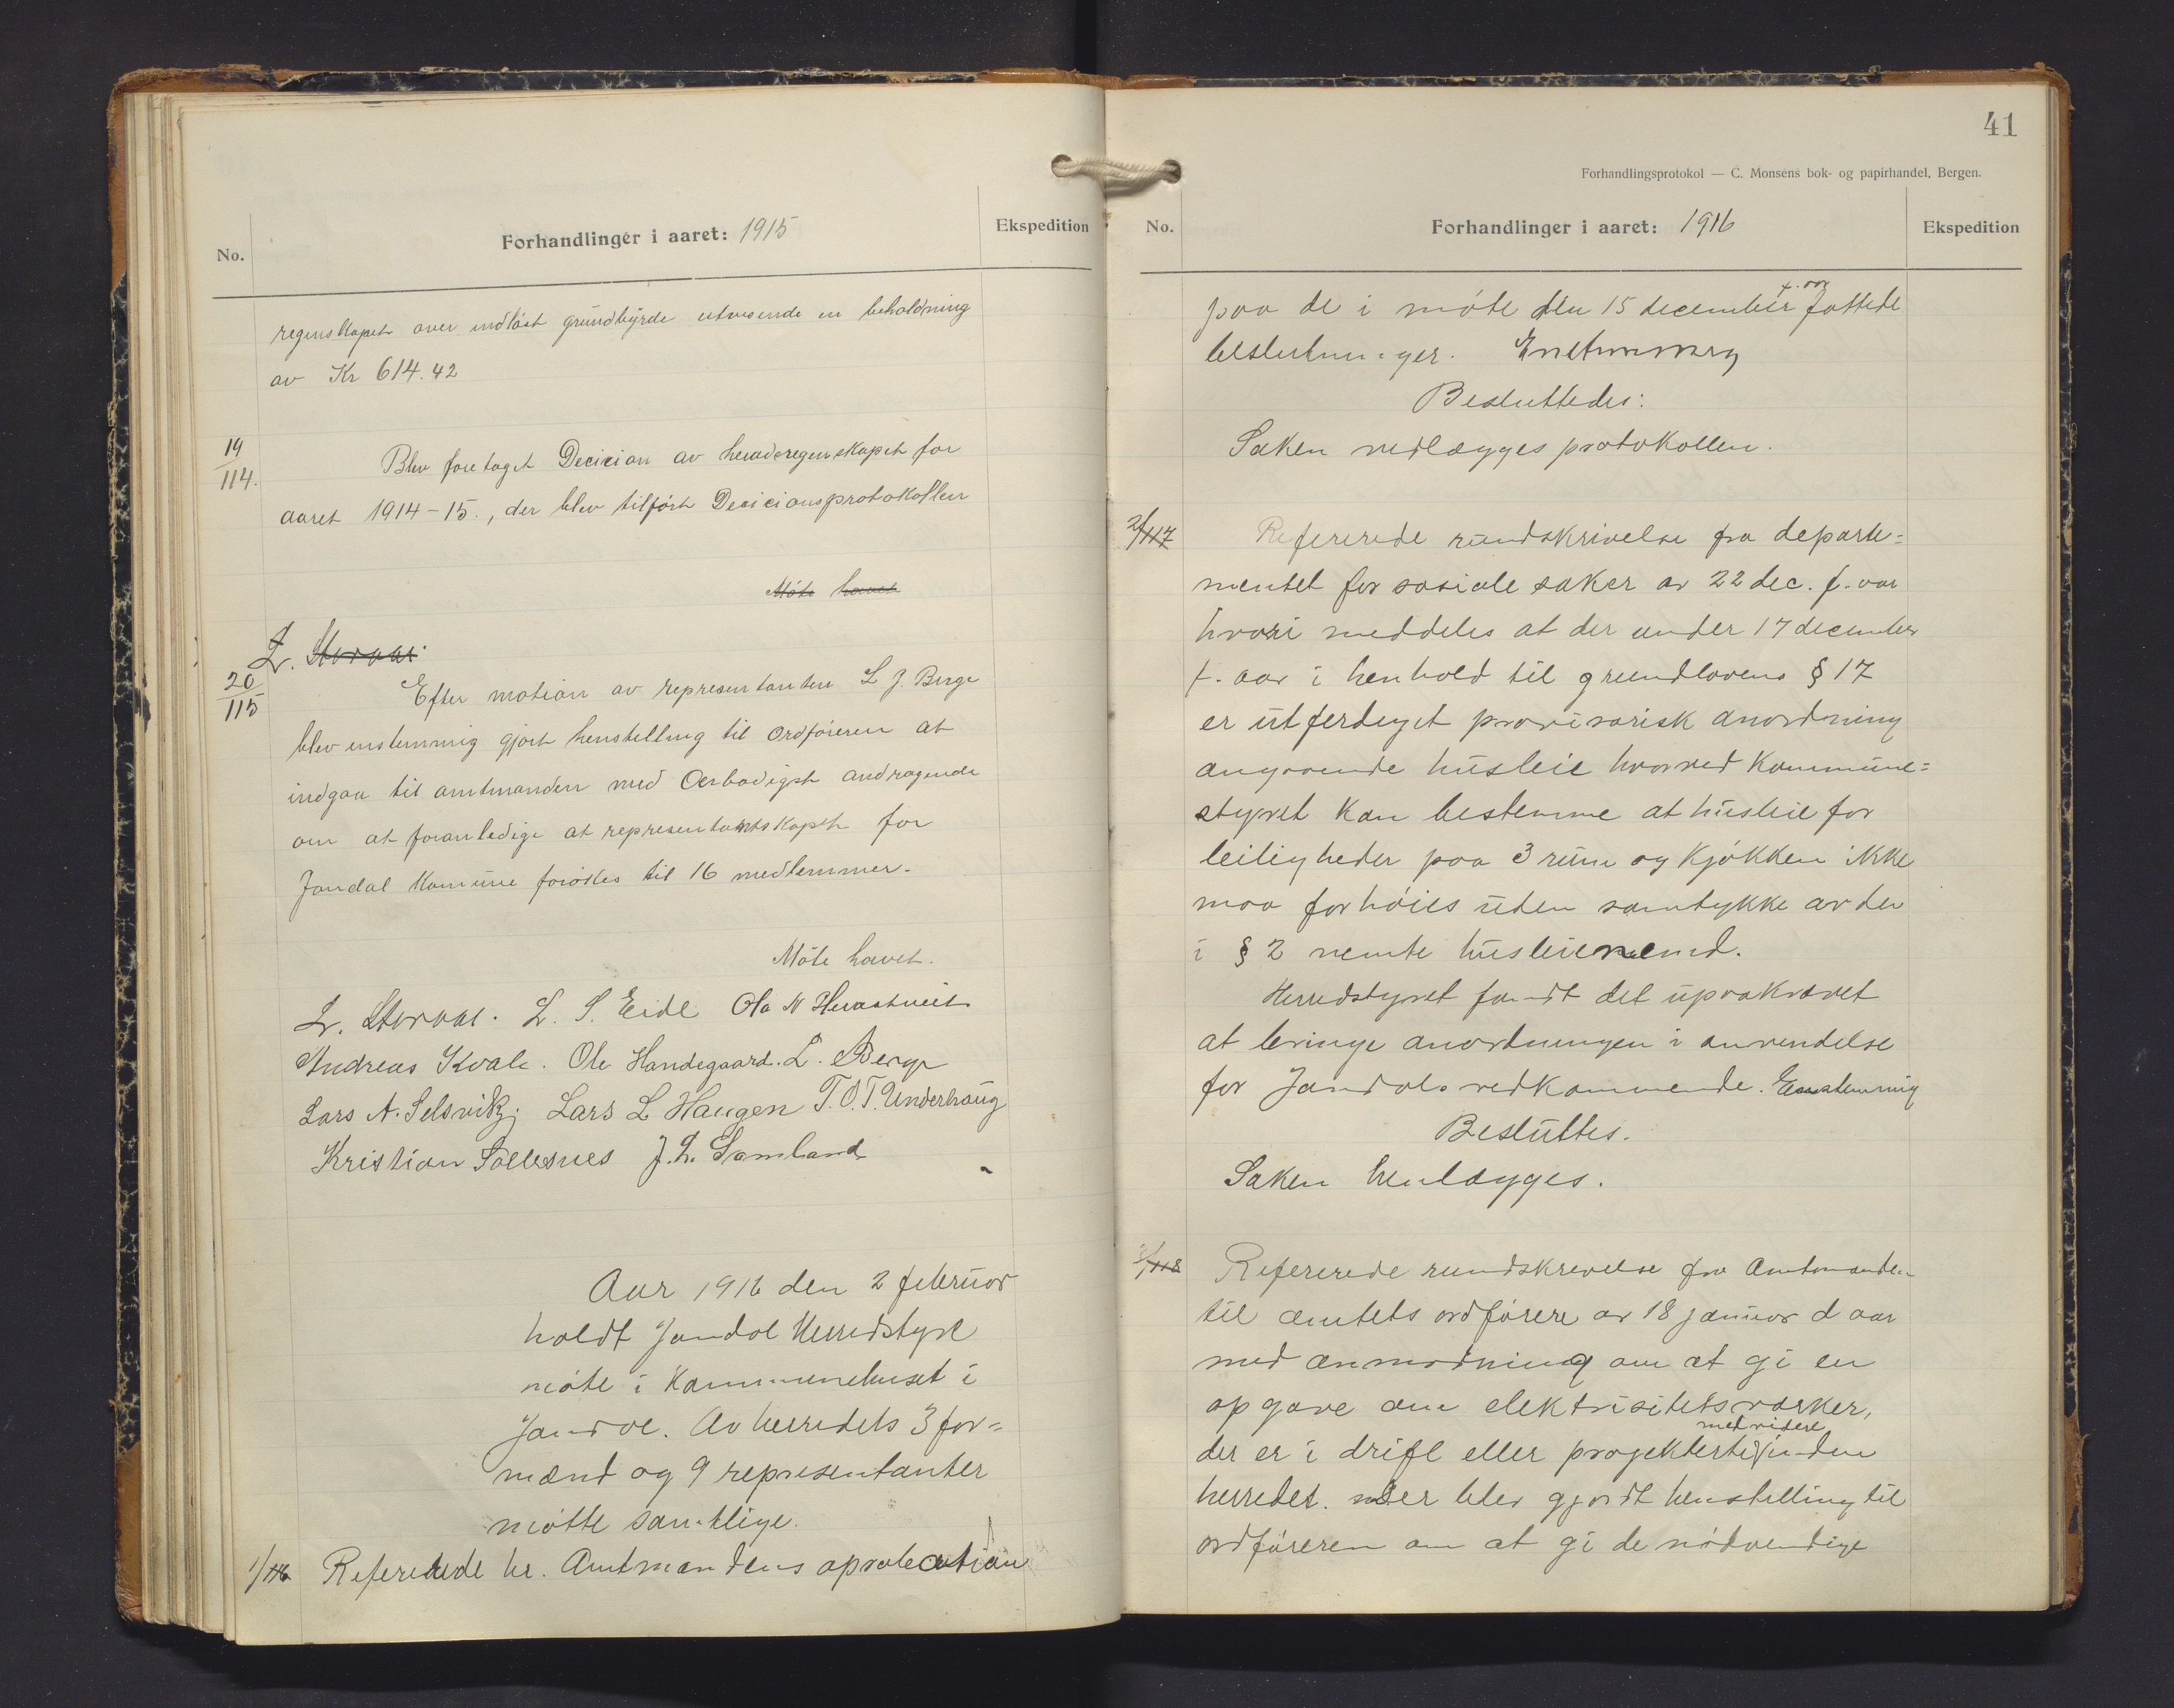 No.
Forhandlinger i aaret: 1915
Ekspedition
regnskapet over indløst grundbyrde utvisende en beholdning
av Kr 614.42
19/114.
Blev foretaget Decision av herredsregnskapet for
aaret 1914-15., der blev tilført Decisionsprotokollen
Møte hævet
L. Storaas.
20/115
Efter motion av representanten L J. Berge
blev enstemmig gjort henstilling til Ordføreren at
indgaa til amtmanden med Ærbødigst andragende
om at foranledige at representantskapet for
Jondal Komune forøkes til 16 medlemmer.
Møte hævet.
L. Storaas. L. S. Eide Ola N Herastveit
Andreas Kvale. Ole Handegaard. L. Berge
Lars A. Selsvik, Lars L Haugen T.O.T. Underhaug
Kristian Sollesnes J. L. Samland
Aar 1916 den 2 februar
holdt Jondal Herredstyre
møte i Kommunehuset i
Jondal. Av herredets 3 for=
mænd og 9 representanter
møtte samtlige.
1/116 Refererede hr. Amtmandens aprobation
41
Forhandlingsprotokol — C. Monsens bok- og papirhandel, Bergen.
No.
Forhandlinger i aaret: 1916
Ekspedition
paa de i møte den 15 december f. aar fattede
beslutninger. Enstemmig
Besluttedes:
Saken vedlægges protokollen.
2/117
Refererede rundskrivelse fra departe=
mentet for sosiale saker av 22 dec. f. aar
hvori meddeles at der under 17 december
f. aar i henhold til grundlovens § 17
er utferdiget provisorisk anordning
angaaende husleie hvorved Kommune=
styret kan bestemme at husleie for
leiligheder paa 3 rum og kjøkken ikke
maa forhøies uden samtykke av den
i § 2 nemte husleienemd.
Herredstyret fandt det upaakrævet
at bringe anordningen i anvendelse
for Jondals vedkommende. Enstemmig
Besluttes.
Saken henlægges.
3/118
Refererede rundskrivelse fra Amtmanden
til amtets ordførere av 18 januar d aar
med anmodning om at gi en
opgave om elektrisitetsværker,
der er i drift eller projekterte med videre inden
herredet. Der blev gjordt henstilling til
ordføreren om at gi de nødvendige